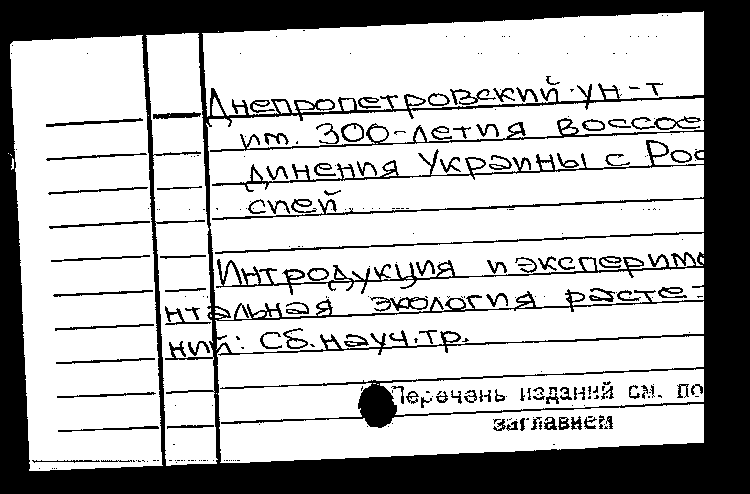 Днепропетровский ун-т
им. 300-летия воссое
динения Украины с Рос
сией
Интродукция и эксперим
нтальная экология расте-
ний: Сб.науч.тр.
Перечень изданий см. по
заглавием